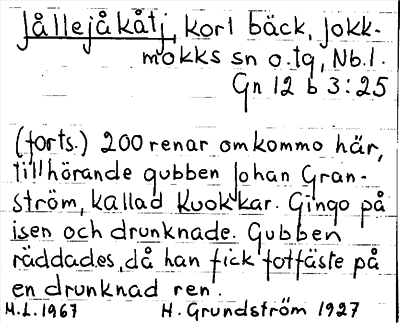 Jållejåkåtj, kort bäck, Jokk-
mokks sn o. tg, Nb. l.
Gn 12 b 3:25
(forts.) 200 renar omkommo här,
tillhörande gubben Johan Gran-
ström, kallad Kuokkar. Gingo på
isen och drunknade. Gubben
räddades, då han fick fotfäste på
en drunknad ren.
M.L. 1967 H. Grundström 1927